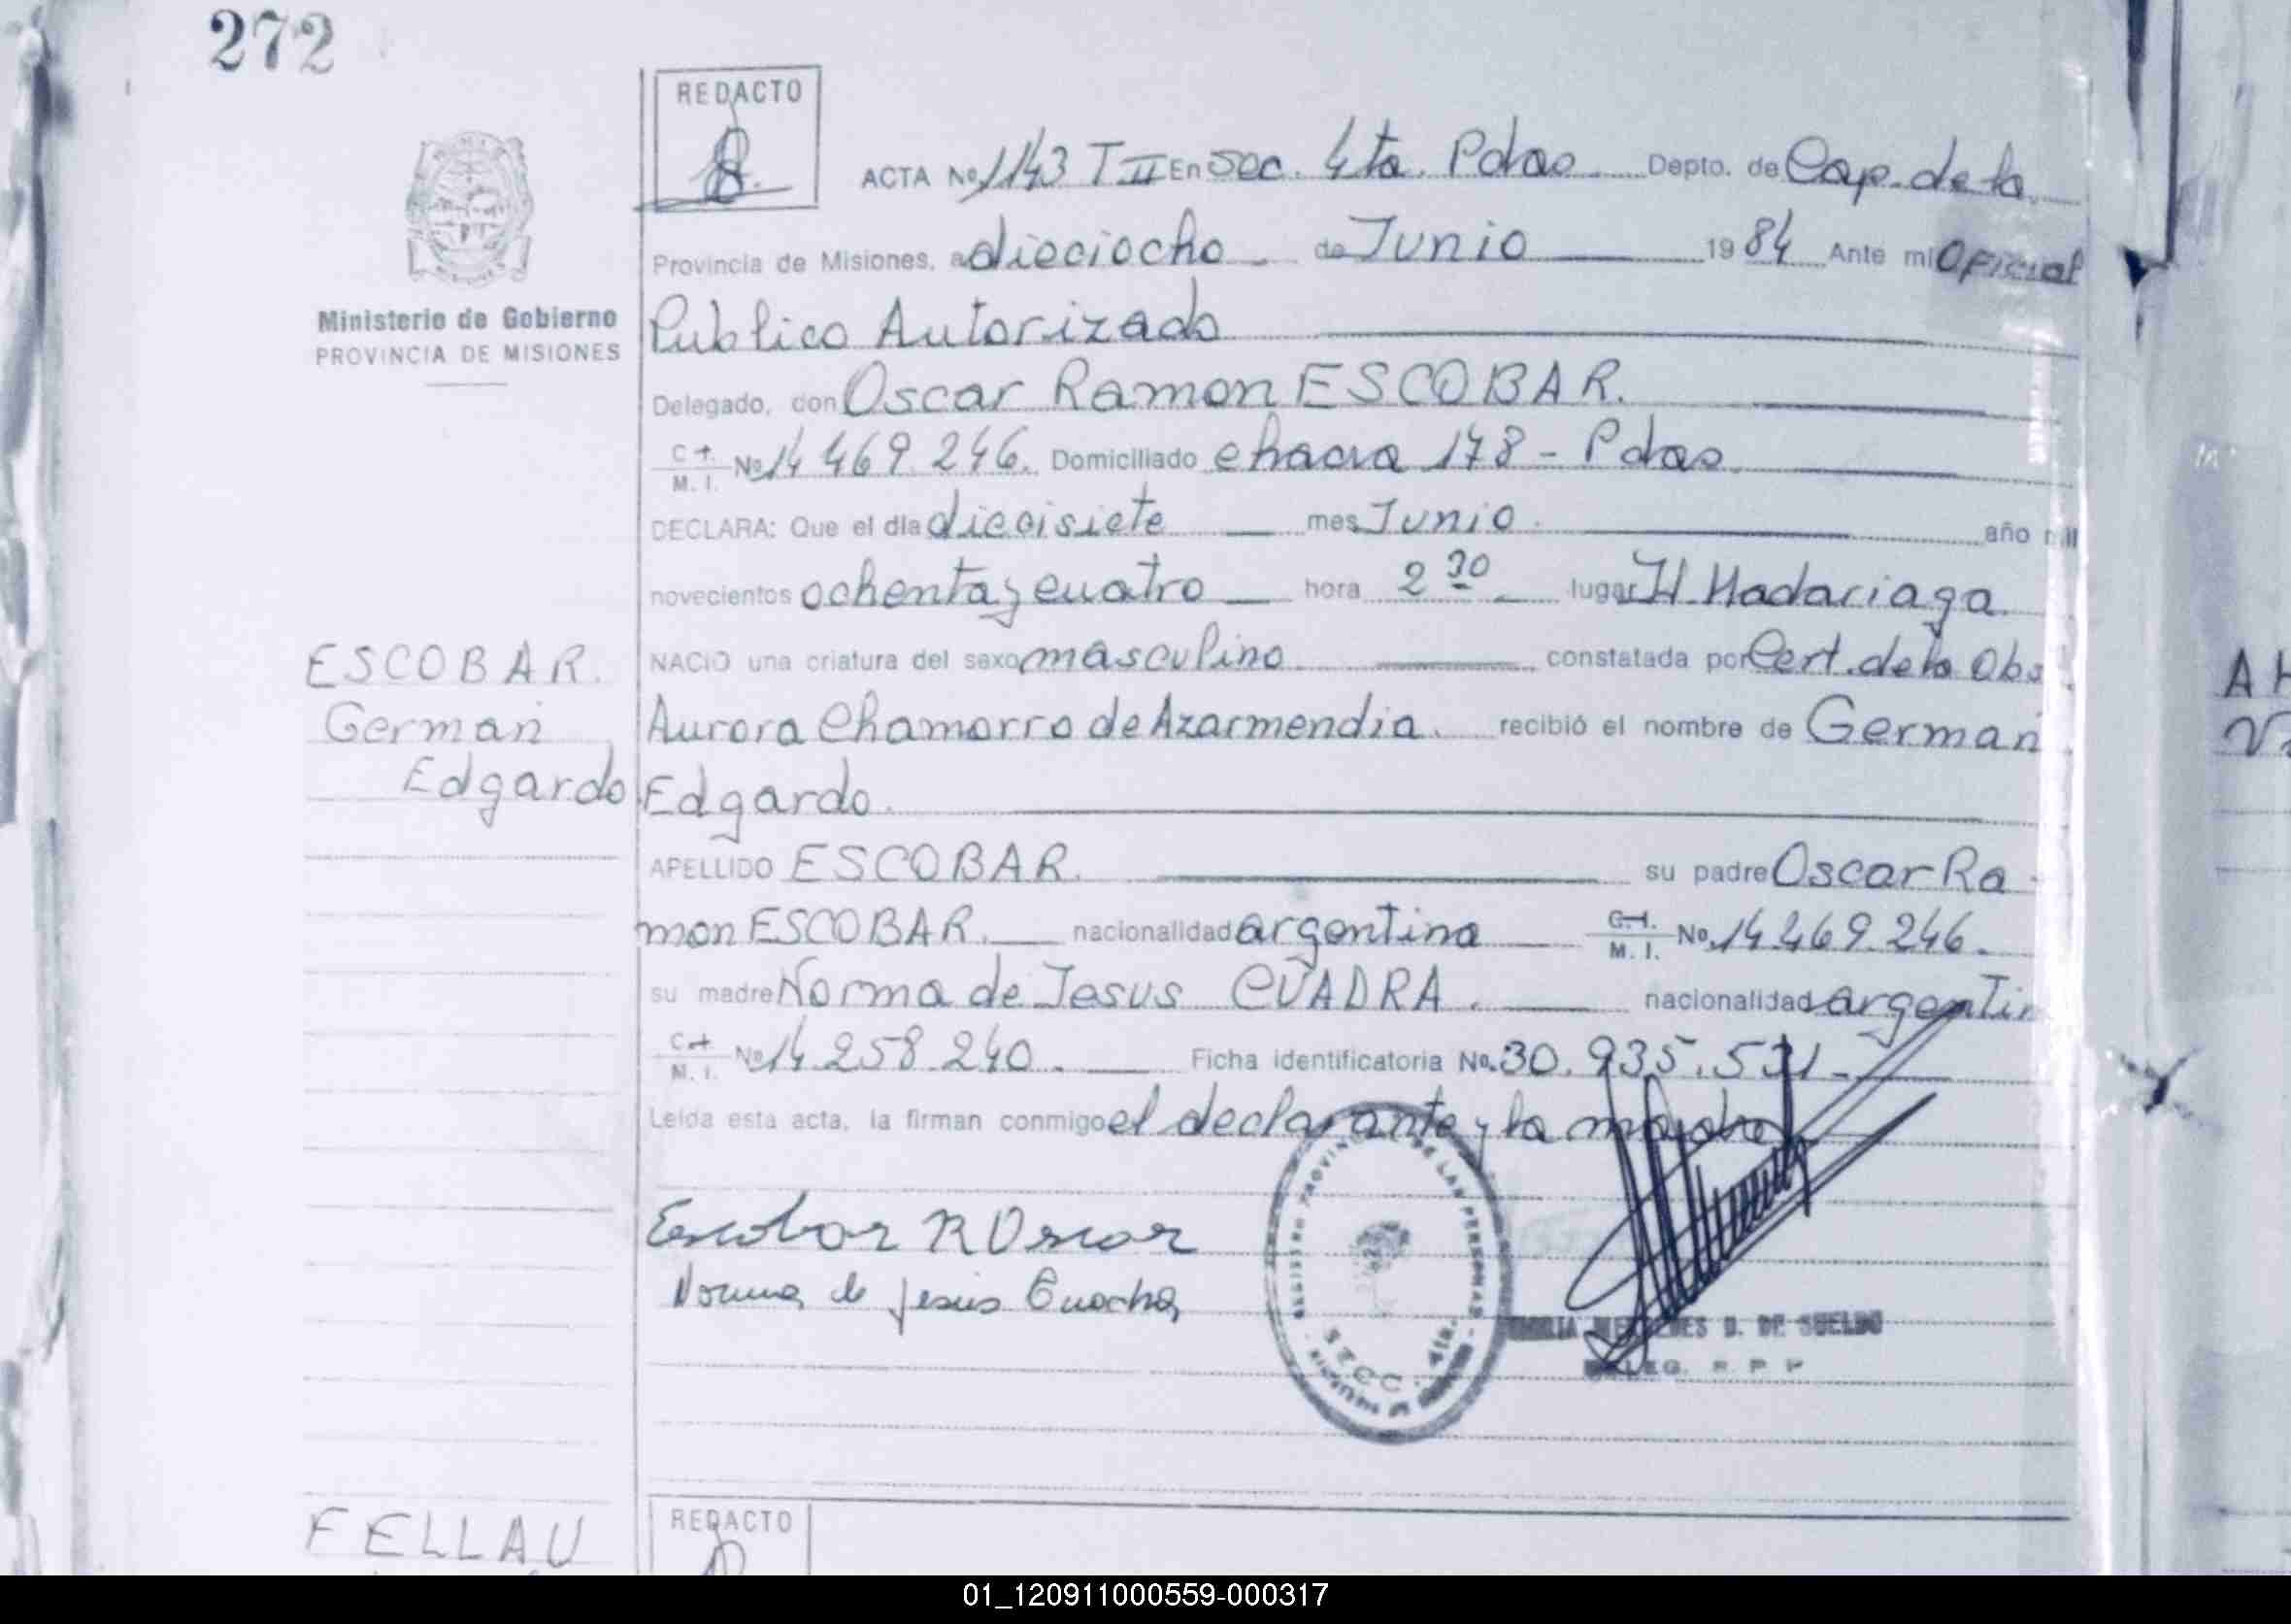 272
REDACTO
ACTA No 1143 T II En Sec. 4ta. Pdas. Depto. de Cap. de la
Provincia de Misiones, a dieciocho de Junio 1984 Ante mi Oficial
Ministerio de Gobierno
PROVINCIA DE MISIONES
Publico Autorizado
Delegado, don Oscar Ramon ESCOBAR.
C.I. M. I. No 14 469 246. Domiciliado chacra 178 - Pdas.
DECLARA: Que el día diecisiete mes Junio. año mil
novecientos ochenta y cuatro hora 2 30 lugar H. Madariaga.
NACIO una criatura del sexo masculino constatada por Cert. de la Obs
Aurora Chamorro de Azarmendia. recibió el nombre de German
Edgardo.
ESCOBAR.
German
Edgardo
APELLIDO ESCOBAR. su padre Oscar Ra
mon ESCOBAR. nacionalidad argentina C.I. M. I. No. 14 469 246.
su madre Norma de Jesus CUADRA. nacionalidad argentin
C.I. M. I. No 14 258 240. Ficha identificatoria No. 30.935.531
Leída esta acta, la firman conmigo el declarante y la madre
Escobar R Oscar
Norma de Jesus Cuadra
REGISTRO PROVINCIAL DE LAS PERSONAS
SECC. 4ta.
D. DE SUELDO
DELEG. R. P. P.
FELLAU
REDACTO
A
01_120911000559-000317